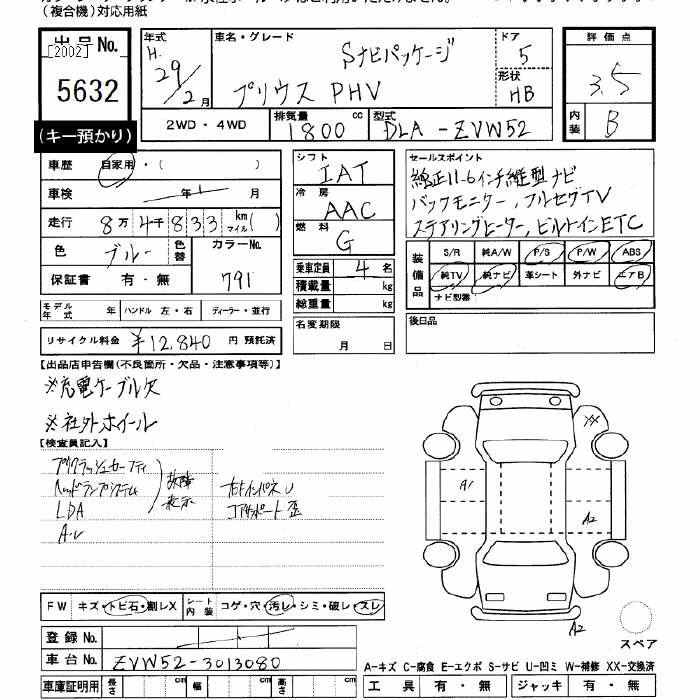 (複合機)対応用紙
出品No.
[2002]
5632
(キー預かり)
年式
H.
29/2月
車名・グレード
Sナビパッケージ
プリウス PHV
ドア
5
形状
HB
評価点
3.5
内装
B
2WD・4WD
排気量
1800 cc
型式
DLA-ZVW52
車歴 自家用・( )
車検 年 月
走行 8万4千833 km マイル( )
色 ブルー 色替 カラーNo. 791
保証書 有・無
モデル年式 年 ハンドル 左・右 ディーラー・並行
リサイクル料金 ¥12,840 円 預託済
シフト
IAT
冷房
AAC
燃料
G
乗車定員 4 名
積載量 kg
総重量 kg
名変期限
月 日
セールスポイント
純正11.6インチ縦型ナビ
バックモニター,フルセグTV
ステアリングヒーター,ビルトインETC
装備品
S/R 純A/W P/S P/W ABS
純TV 純ナビ 革シート 外ナビ エアB
ナビ型番
後日品
【出品店申告欄(不良箇所・欠品・注意事項等)】
※充電ケーブル欠
※社外ホイール
【検査員記入】
プリクラッシュセーフティ
ヘッドランプシステム
LDA
故障
表示
A・U
右インパネU
コアサポート歪
XX
A1
A2
A2
スペア
FW キズ・トビ石・割レX シート内装 コゲ・穴・汚レ・シミ・破レ・スレ
登録No.
車台No. ZVW52-3013080
車庫証明用 長さ cm 幅 cm 高さ cm
A-キズ C-腐食 E-エクボ S-サビ U-凹ミ W-補修 XX-交換済
工具 有・無 ジャッキ 有・無